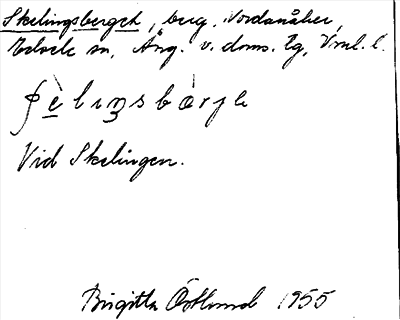 Skelingsberget, berg, Nordanåker,
Edsele sn, Ång. v. doms. tg, Vnl. l.
ʃèlɩŋsbàrjɛ
Vid Skelingen.
Birgitta Östlund 1955